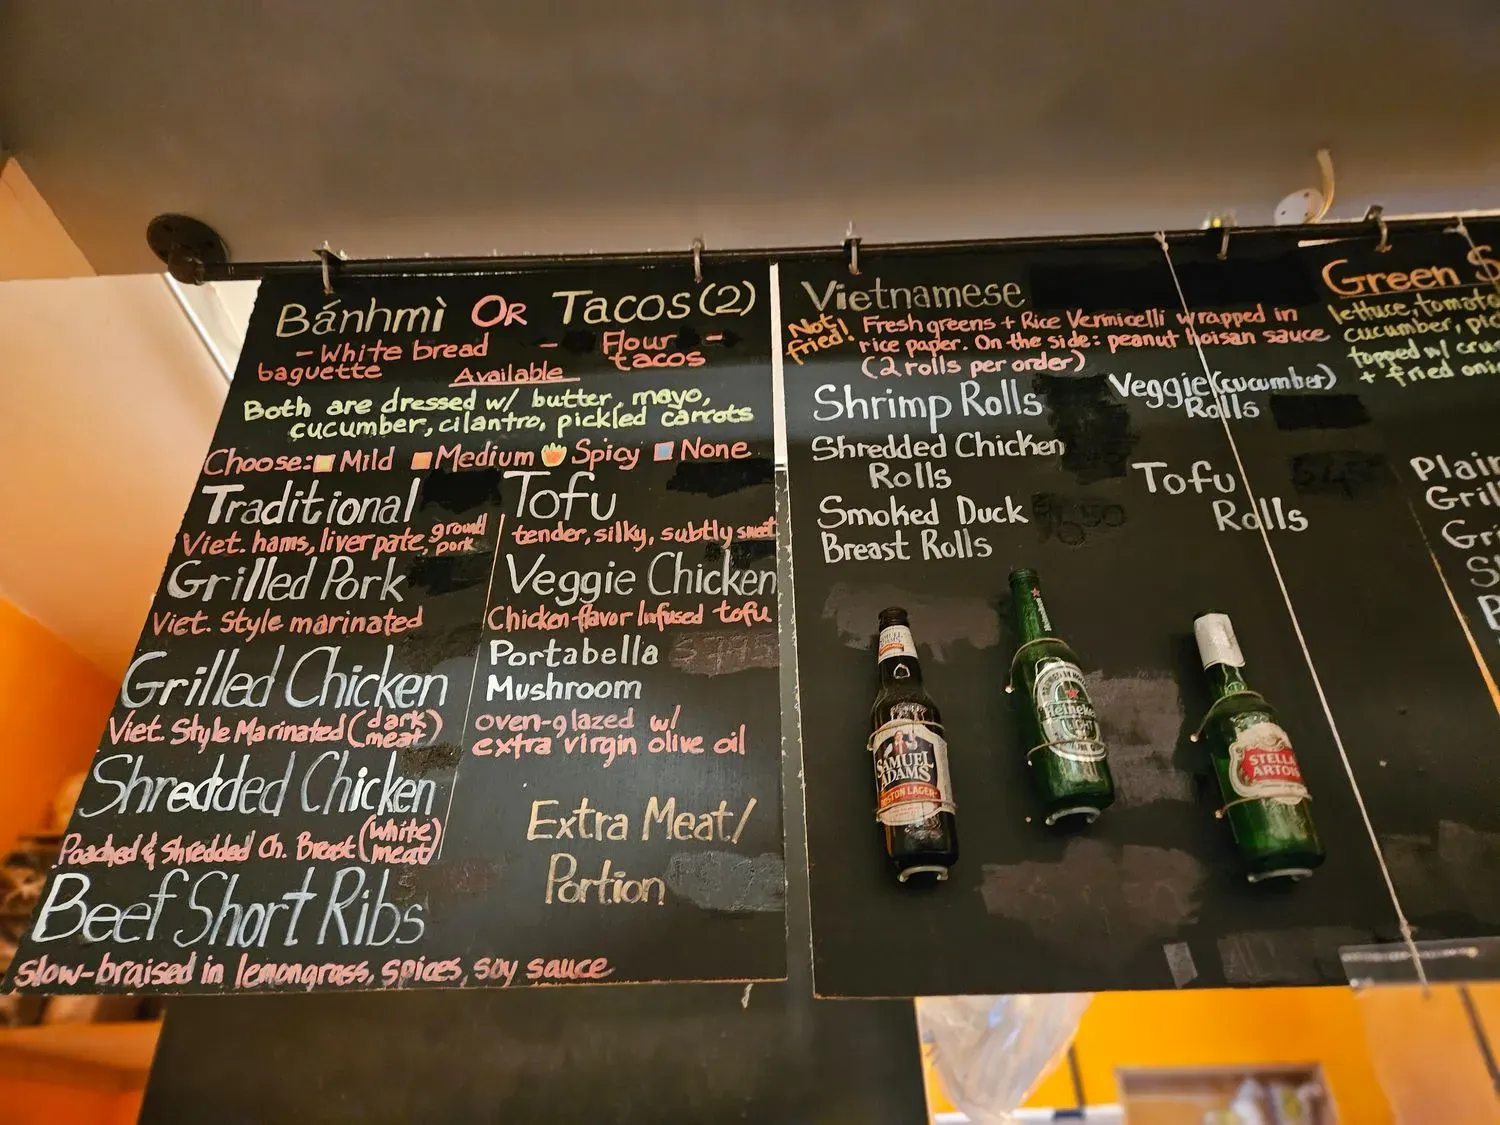 Bánhmì OR Tacos (2)
- White bread baguette
- Flour - tacos
Available
Both are dressed w/ butter, mayo,
cucumber, cilantro, pickled carrots
Choose: Mild Medium Spicy None
Traditional
Viet. hams, liver pate, ground pork
Grilled Pork
Viet. Style marinated
Grilled Chicken
Viet. Style Marinated (dark meat)
Shredded Chicken
Poached & Shredded Ch. Breast (white meat)
Beef Short Ribs
slow-braised in lemongrass, spices, soy sauce
Tofu
tender, silky, subtly sweet
Veggie Chicken
Chicken-flavor Infused tofu
Portabella
Mushroom
oven-glazed w/
extra virgin olive oil
Extra Meat/
Portion
Vietnamese
Not fried!
Fresh greens + Rice Vermicelli wrapped in
rice paper. On the side: peanut hoisan sauce
(2 rolls per order)
Shrimp Rolls
Shredded Chicken
Rolls
Smoked Duck
Breast Rolls
Veggie (cucumber)
Rolls
Tofu
Rolls
SAMUEL
ADAMS
BOSTON LAGER
Heineken
LIGHT
STELLA
ARTOIS
Green
lettuce, tomato
cucumber,
topped w/
+ fried
Plain